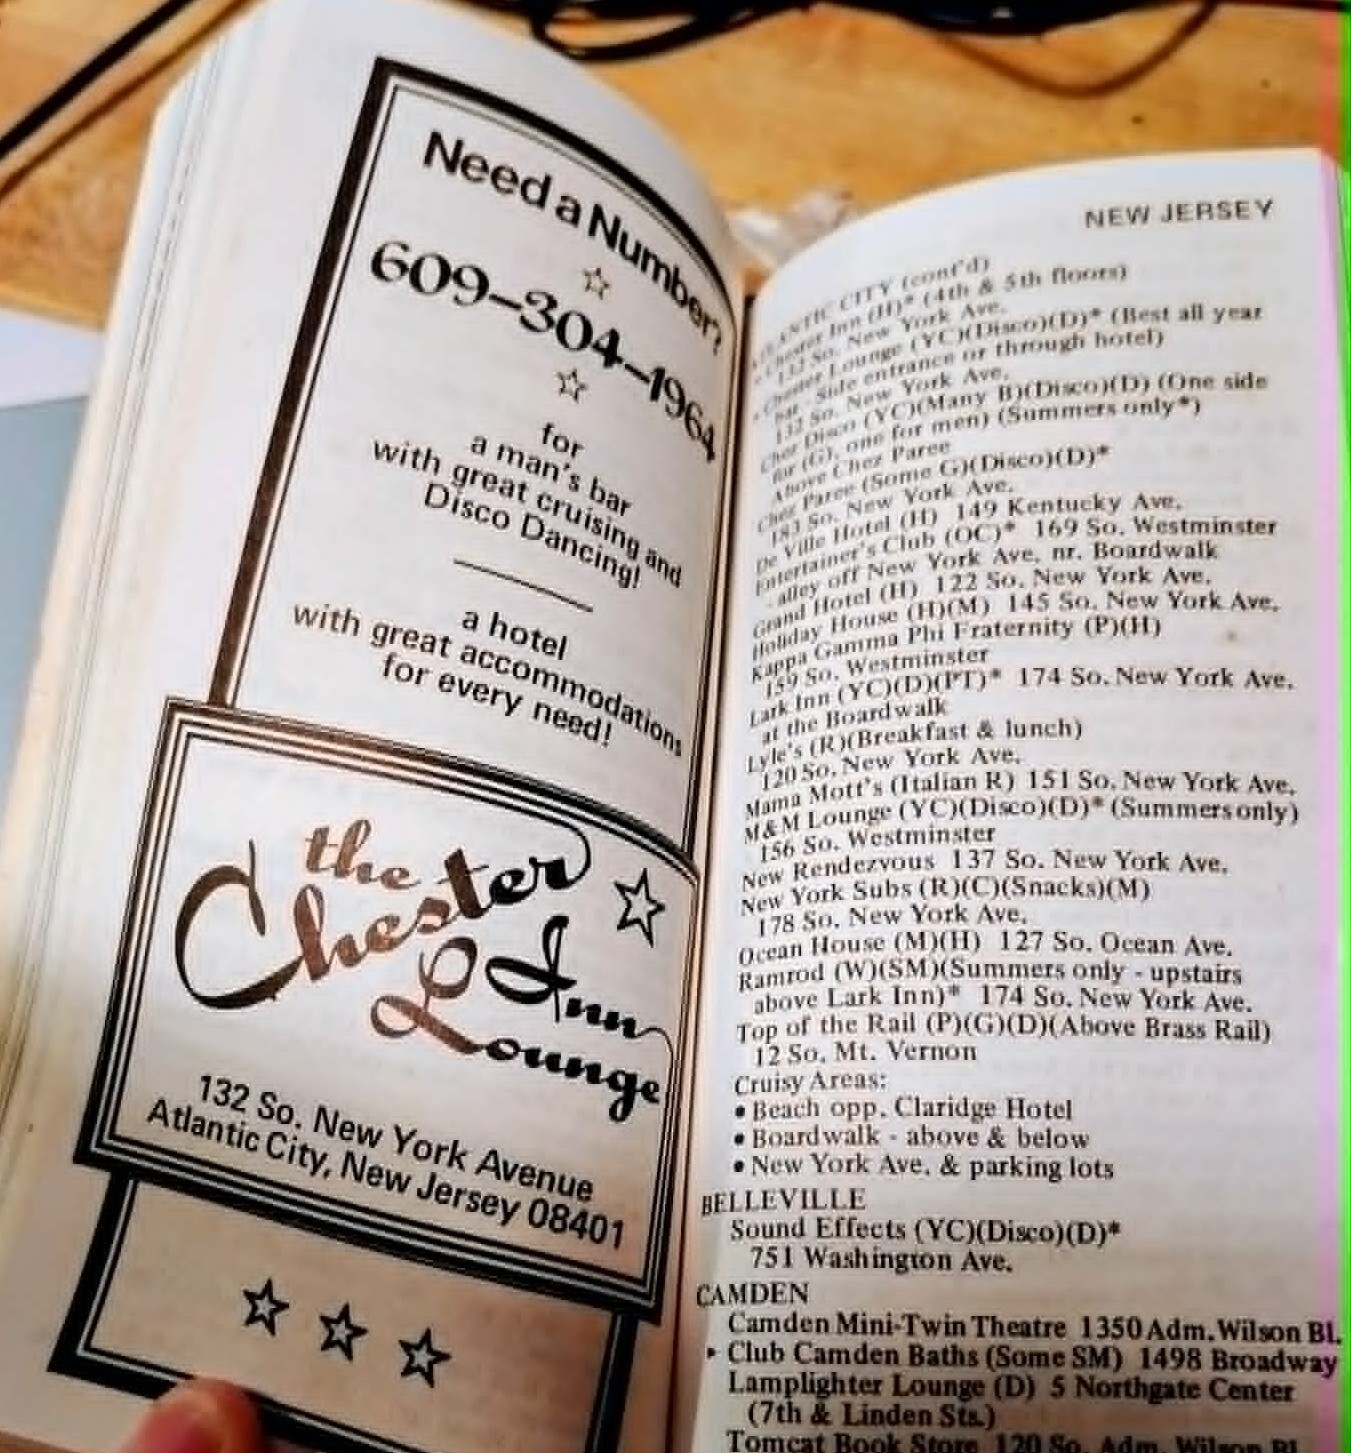 Need a Number?
609-304-1964
for
a man's bar
with great cruising and
Disco Dancing!
a hotel
with great accommodations
for every need!
the
Chester
Inn
Lounge
132 So. New York Avenue
Atlantic City, New Jersey 08401
NEW JERSEY
ATLANTIC CITY (cont'd)
Chester Inn (H)* (4th & 5th floors)
132 So. New York Ave.
Chester Lounge (YC)(Disco)(D)* (Best all year
bar. Side entrance or through hotel)
132 So. New York Ave.
Chez Disco (YC)(Many B)(Disco)(D) (One side
for (G), one for men) (Summers only*)
Above Chez Paree
Chez Paree (Some G)(Disco)(D)*
143 So. New York Ave.
De Ville Hotel (H) 149 Kentucky Ave.
Entertainer's Club (OC)* 169 So. Westminster
alley off New York Ave. nr. Boardwalk
Grand Hotel (H) 122 So. New York Ave.
Holiday House (H)(M) 145 So. New York Ave.
Kappa Gamma Phi Fraternity (P)(H)
159 So. Westminster
Lark Inn (YC)(D)(PT)* 174 So. New York Ave.
at the Boardwalk
Lyle's (R)(Breakfast & lunch)
120 So. New York Ave.
Mama Mott's (Italian R) 151 So. New York Ave.
M&M Lounge (YC)(Disco)(D)* (Summers only)
156 So. Westminster
New Rendezvous 137 So. New York Ave.
New York Subs (R)(C)(Snacks)(M)
178 So. New York Ave.
Ocean House (M)(H) 127 So. Ocean Ave.
Ramrod (W)(SM)(Summers only - upstairs
above Lark Inn)* 174 So. New York Ave.
Top of the Rail (P)(G)(D)(Above Brass Rail)
12 So. Mt. Vernon
Cruisy Areas:
• Beach opp. Claridge Hotel
• Boardwalk - above & below
• New York Ave. & parking lots
BELLEVILLE
Sound Effects (YC)(Disco)(D)*
751 Washington Ave.
CAMDEN
Camden Mini-Twin Theatre 1350 Adm. Wilson Bl.
Club Camden Baths (Some SM) 1498 Broadway
Lamplighter Lounge (D) 5 Northgate Center
(7th & Linden Sts.)
Tomcat Book Store 120 So. Adm. Wilson Bl.